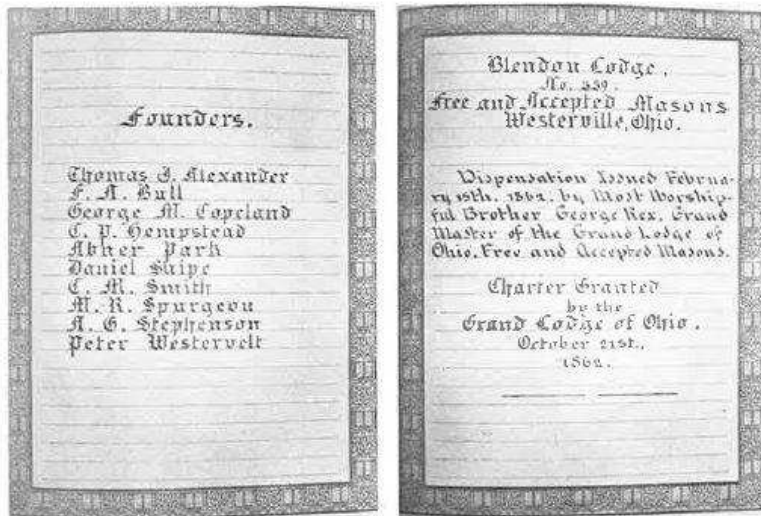 Founders.
Thomas J. Alexander
F. A. Bull
George M. Copeland
C. P. Hempstead
Abner Park
Daniel Shipe
C. M. Smith
M. R. Spurgeon
A. G. Stephenson
Peter Westervelt
Blendon Lodge,
No. 339,
Free and Accepted Masons
Westerville, Ohio.
Dispensation Issued Februa-
ry 15th, 1862, by Most Worship-
ful Brother George Rex, Grand
Master of the Grand Lodge of
Ohio, Free and Accepted Masons.
Charter Granted
by the
Grand Lodge of Ohio.
October 21st.,
1862.